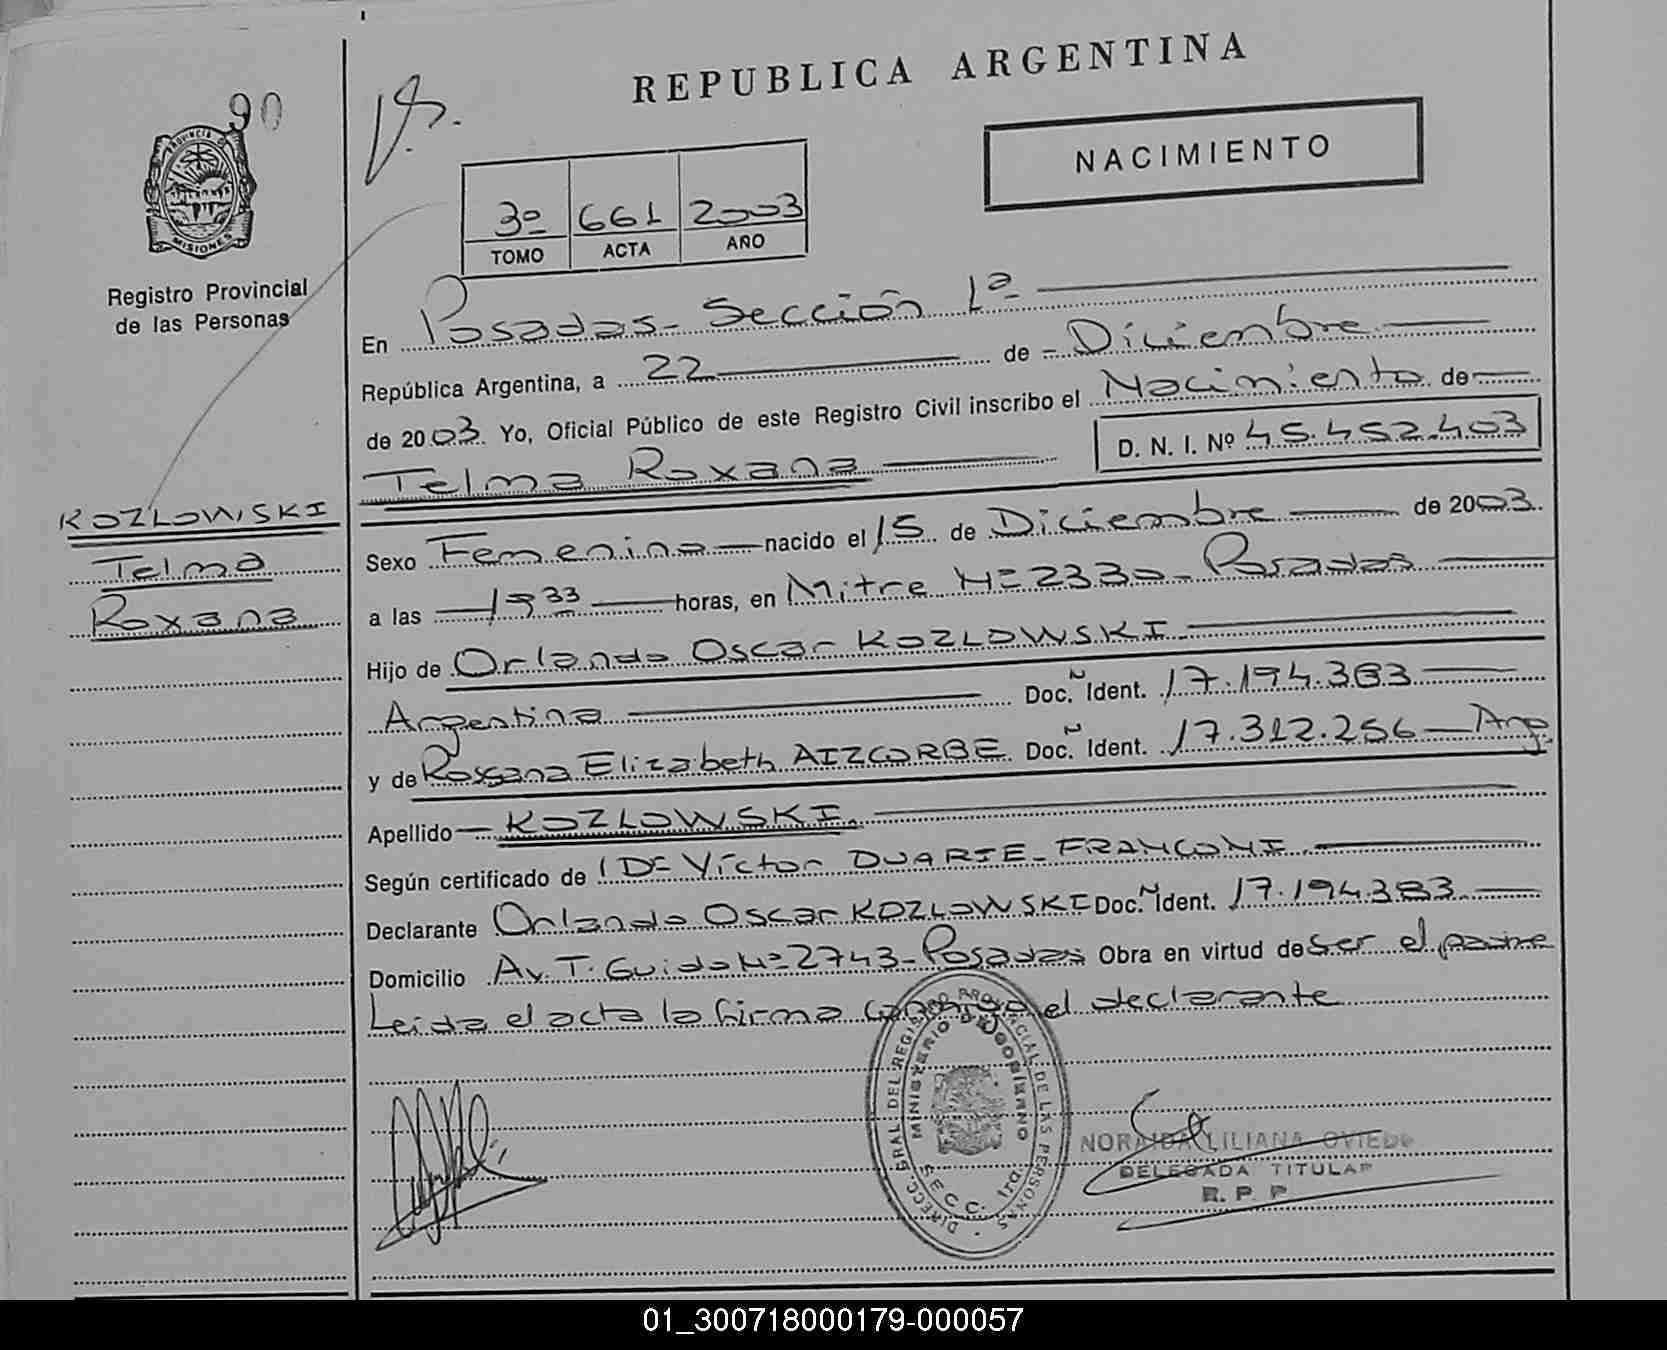 REPUBLICA ARGENTINA
90
NACIMIENTO
PROVINCIA DE
MISIONES
3º 661 2003
TOMO ACTA AÑO
Registro Provincial
de las Personas
En Posadas - Sección 1ª
República Argentina, a 22 de Diciembre
de 2003. Yo, Oficial Público de este Registro Civil inscribo el Nacimiento de
Telma Roxana D. N. I. Nº 45.452.403
KOZLOWSKI
Telma
Roxana
Sexo Femenina nacido el 15 de Diciembre de 2003.
a las 19 33 horas, en Mitre Nº 2330 - Posadas
Hijo de Orlando Oscar KOZLOWSKI
Argentina Doc. Ñ Ident. 17.194.383
y de Rossana Elizabeth AIZCORBE Doc. Ñ Ident. 17.312.256 Arg.
Apellido KOZLOWSKI.
Según certificado de Dr Víctor DUARTE - FRANCONI
Declarante Orlando Oscar KOZLOWSKI Doc. N Ident. 17.194.383
Domicilio Av. T. Guido Nº 2743 - Posadas Obra en virtud de ser el padre
Leida el acta la firma conmigo el declarante
DIRECC. GRAL DEL REGISTRO PROVINCIAL DE LAS PERSONAS
MINISTERIO DE GOBIERNO
SECC. 1ra.
NORAIDA LILIANA OVIEDO
DELEGADA TITULAR
R. P. P
01_300718000179-000057